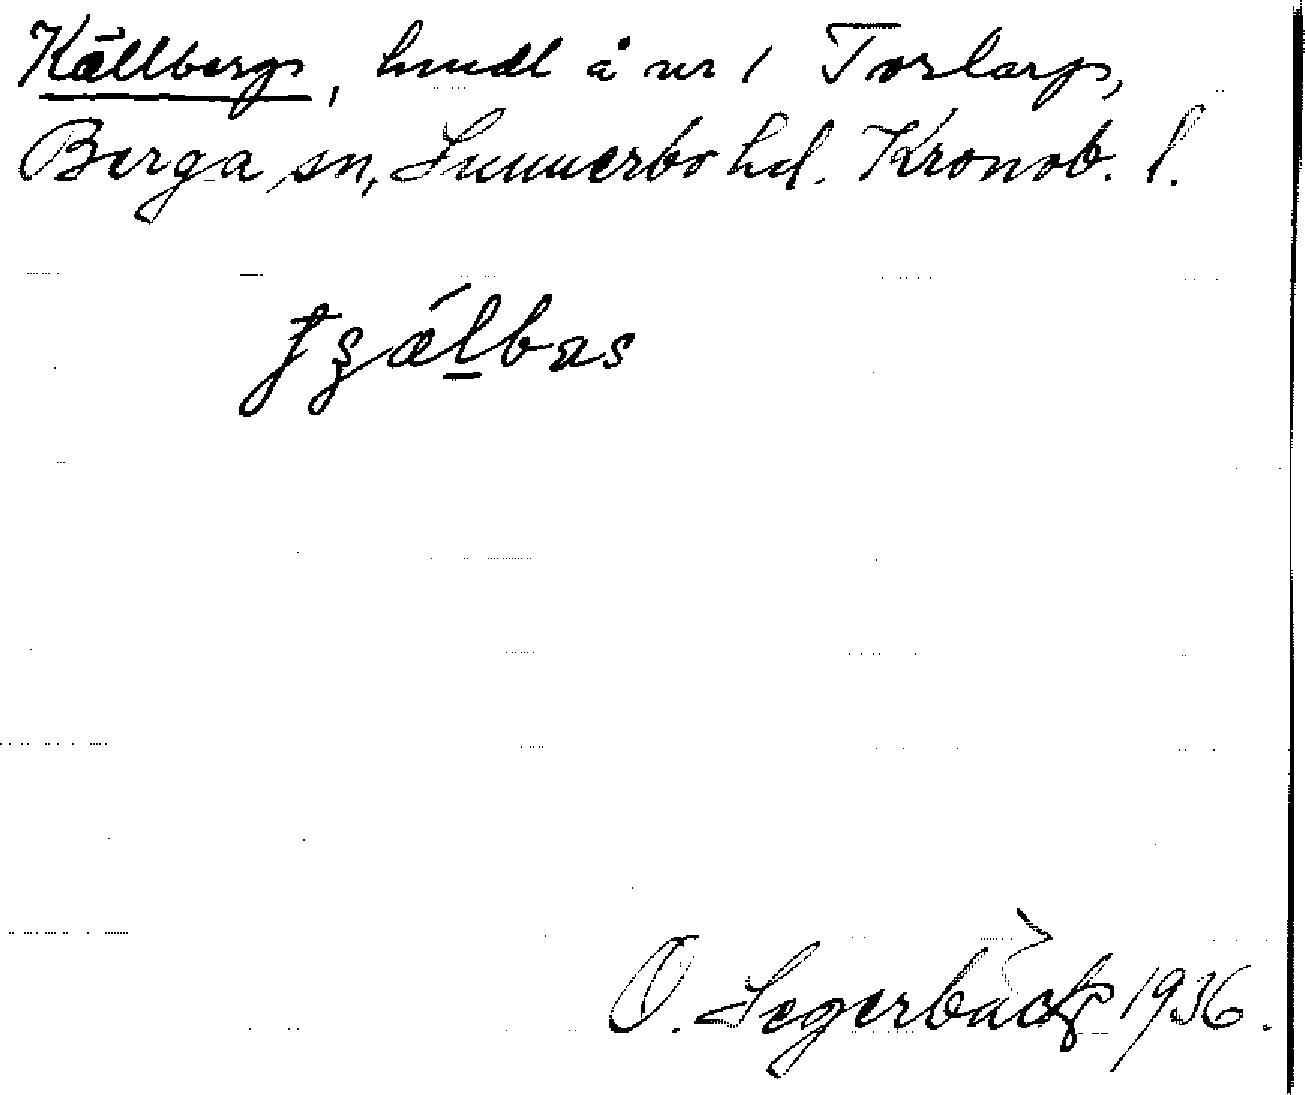 Källberg, hmdl å nr 1 Torlarp,
Berga sn, Sunnerbo hd. Kronob. l.
O. Segerbäck 1936.